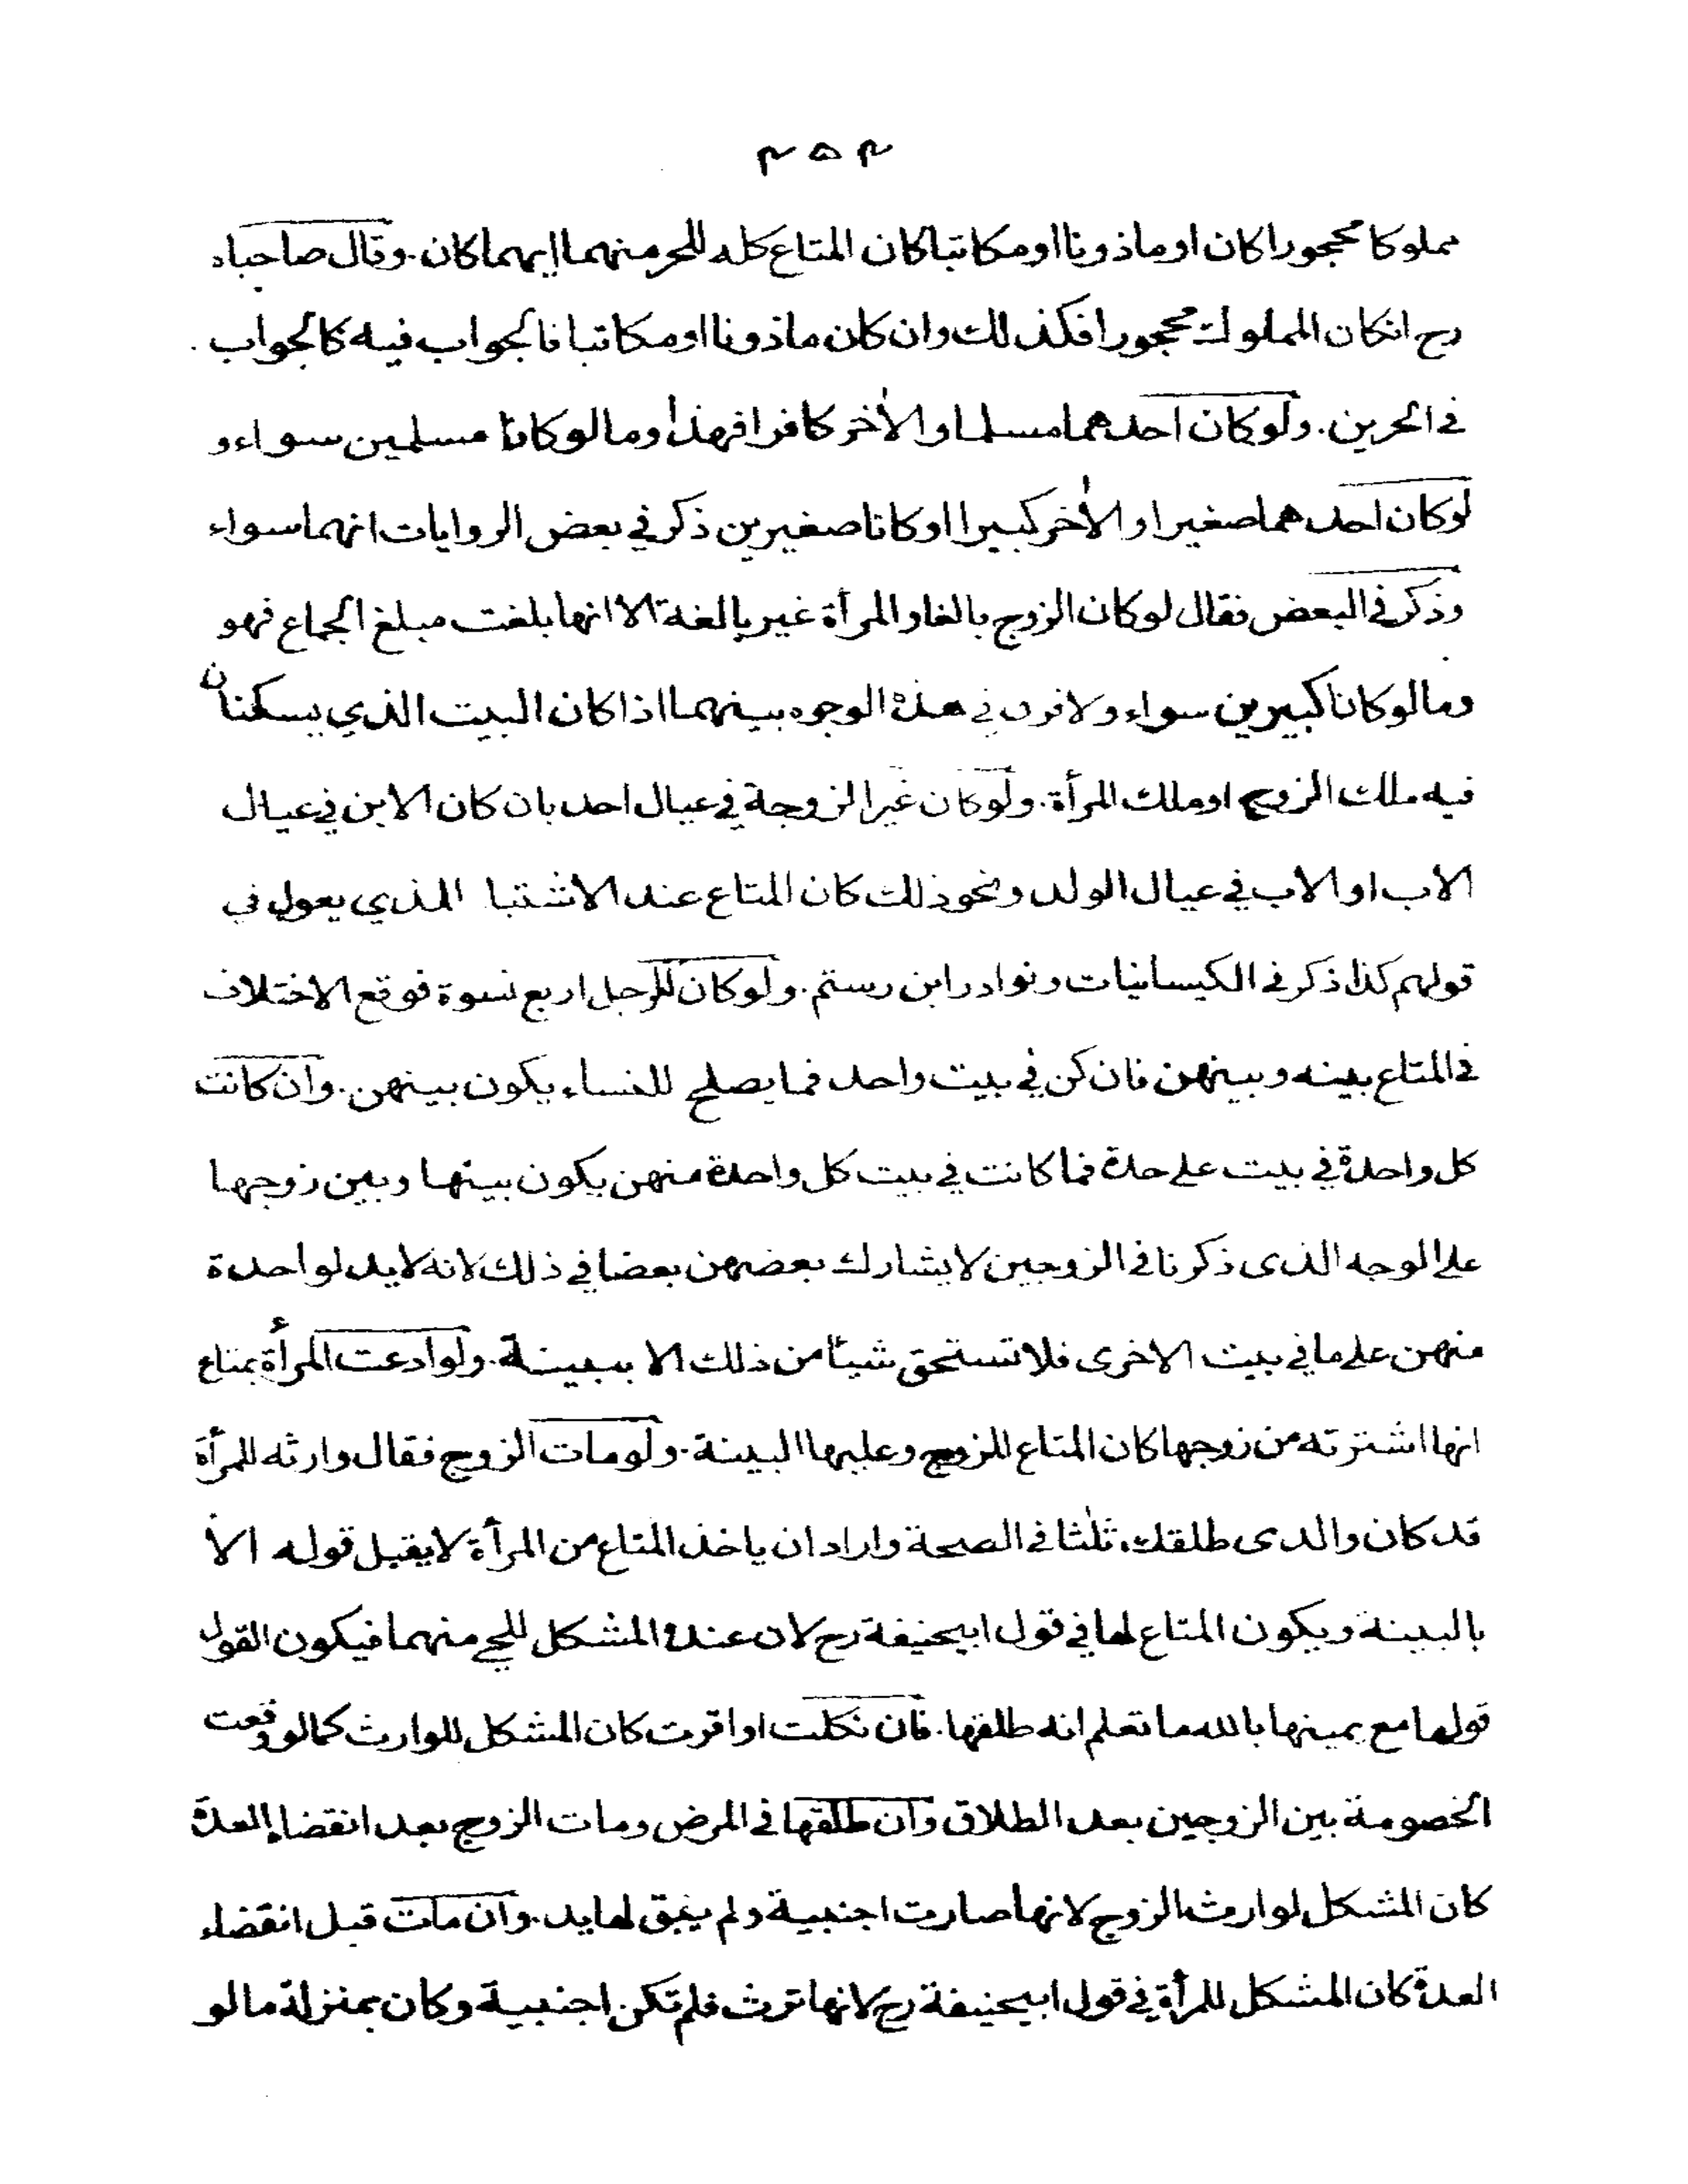 ۴۵۴
مملوكا محجورا كان او ماذونا او مكاتبا كان المتاع كله للحر منهما ايهما كان. وقال صاحباه
رح انكان المملوك محجورا فكذلك وان كان ماذونا او مكاتبا فالجواب فيه كالجواب
فى الحرين. ولو كان احدهما مسلما والاٰخر كافرا فهذا وما لو كانا مسلمين سواء و
لو كان احدهما صغيرا والاٰخر كبيرا او كانا صغيرين ذكر في بعض الروايات انهما سواء
وذكر فى البعض فقال لو كان الزوج بالغا والمرأة غير بالغة الا انها بلغت مبلغ الجماع فهو
وما لو كانا كبيرين سواء ولا فرق في هذه الوجوه بينهما اذا كان البيت الذي يسكنان
فيه ملك الزوج او ملك المرأة. ولو كان غير الزوجة في عيال احد بان كان الابن في عيال
الاب او الاب في عيال الولد ونحو ذلك كان المتاع عند الاشتبا  للذي يعول في
قولهم كذا ذكر فى الكيسانيات ونوادر ابن رستم. ولو كان للرجل اربع نسوة فوقع الاختلاف
فى المتاع بينه وبينهن فان كن في بيت واحد فما يصلح للنساء يكون بينهن. وان كانت
كل واحدة في بيت على حدة فما كانت في بيت كل واحدة منهن يكون بينها وبين زوجها
على الوجه الذى ذكرنا فى الزوجين لا يشارك بعضهن بعضا في ذلك لانه لا يد لواحدة
منهن على ما في بيت الاخرى فلا تستحق شيئا من ذلك الا ببينة. ولو ادعت المرأة بمتاع
انها اشترته من زوجها كان المتاع للزوج وعليها البينة. ولو مات الزوج فقال وارثه للمرأة
قد كان والدى طلقك ثلٰثا فى الصحة واراد ان ياخذ المتاع من المرأة لا يقبل قوله الا
بالبينة ويكون المتاع لها في قول ابيحنيفة رح لان عنده المشكل للحي منهما فيكون القول
قولها مع يمينها بالله ما تعلم انه طلقها. فان نكلت او اقرت كان المشكل للوارث كما لو وقعت
الخصومة بين الزوجين بعد الطلاق وان طلقها فى المرض ومات الزوج بعد انقضاء العدة
كان المشكل لوارث الزوج لانها صارت اجنبية ولم يبق لها يد. وان مات قبل انقضاء
العدة كان المشكل للمرأة في قول ابيحنيفة رح لانها ترث فلم تكن اجنبية وكان بمنزلة ما لو